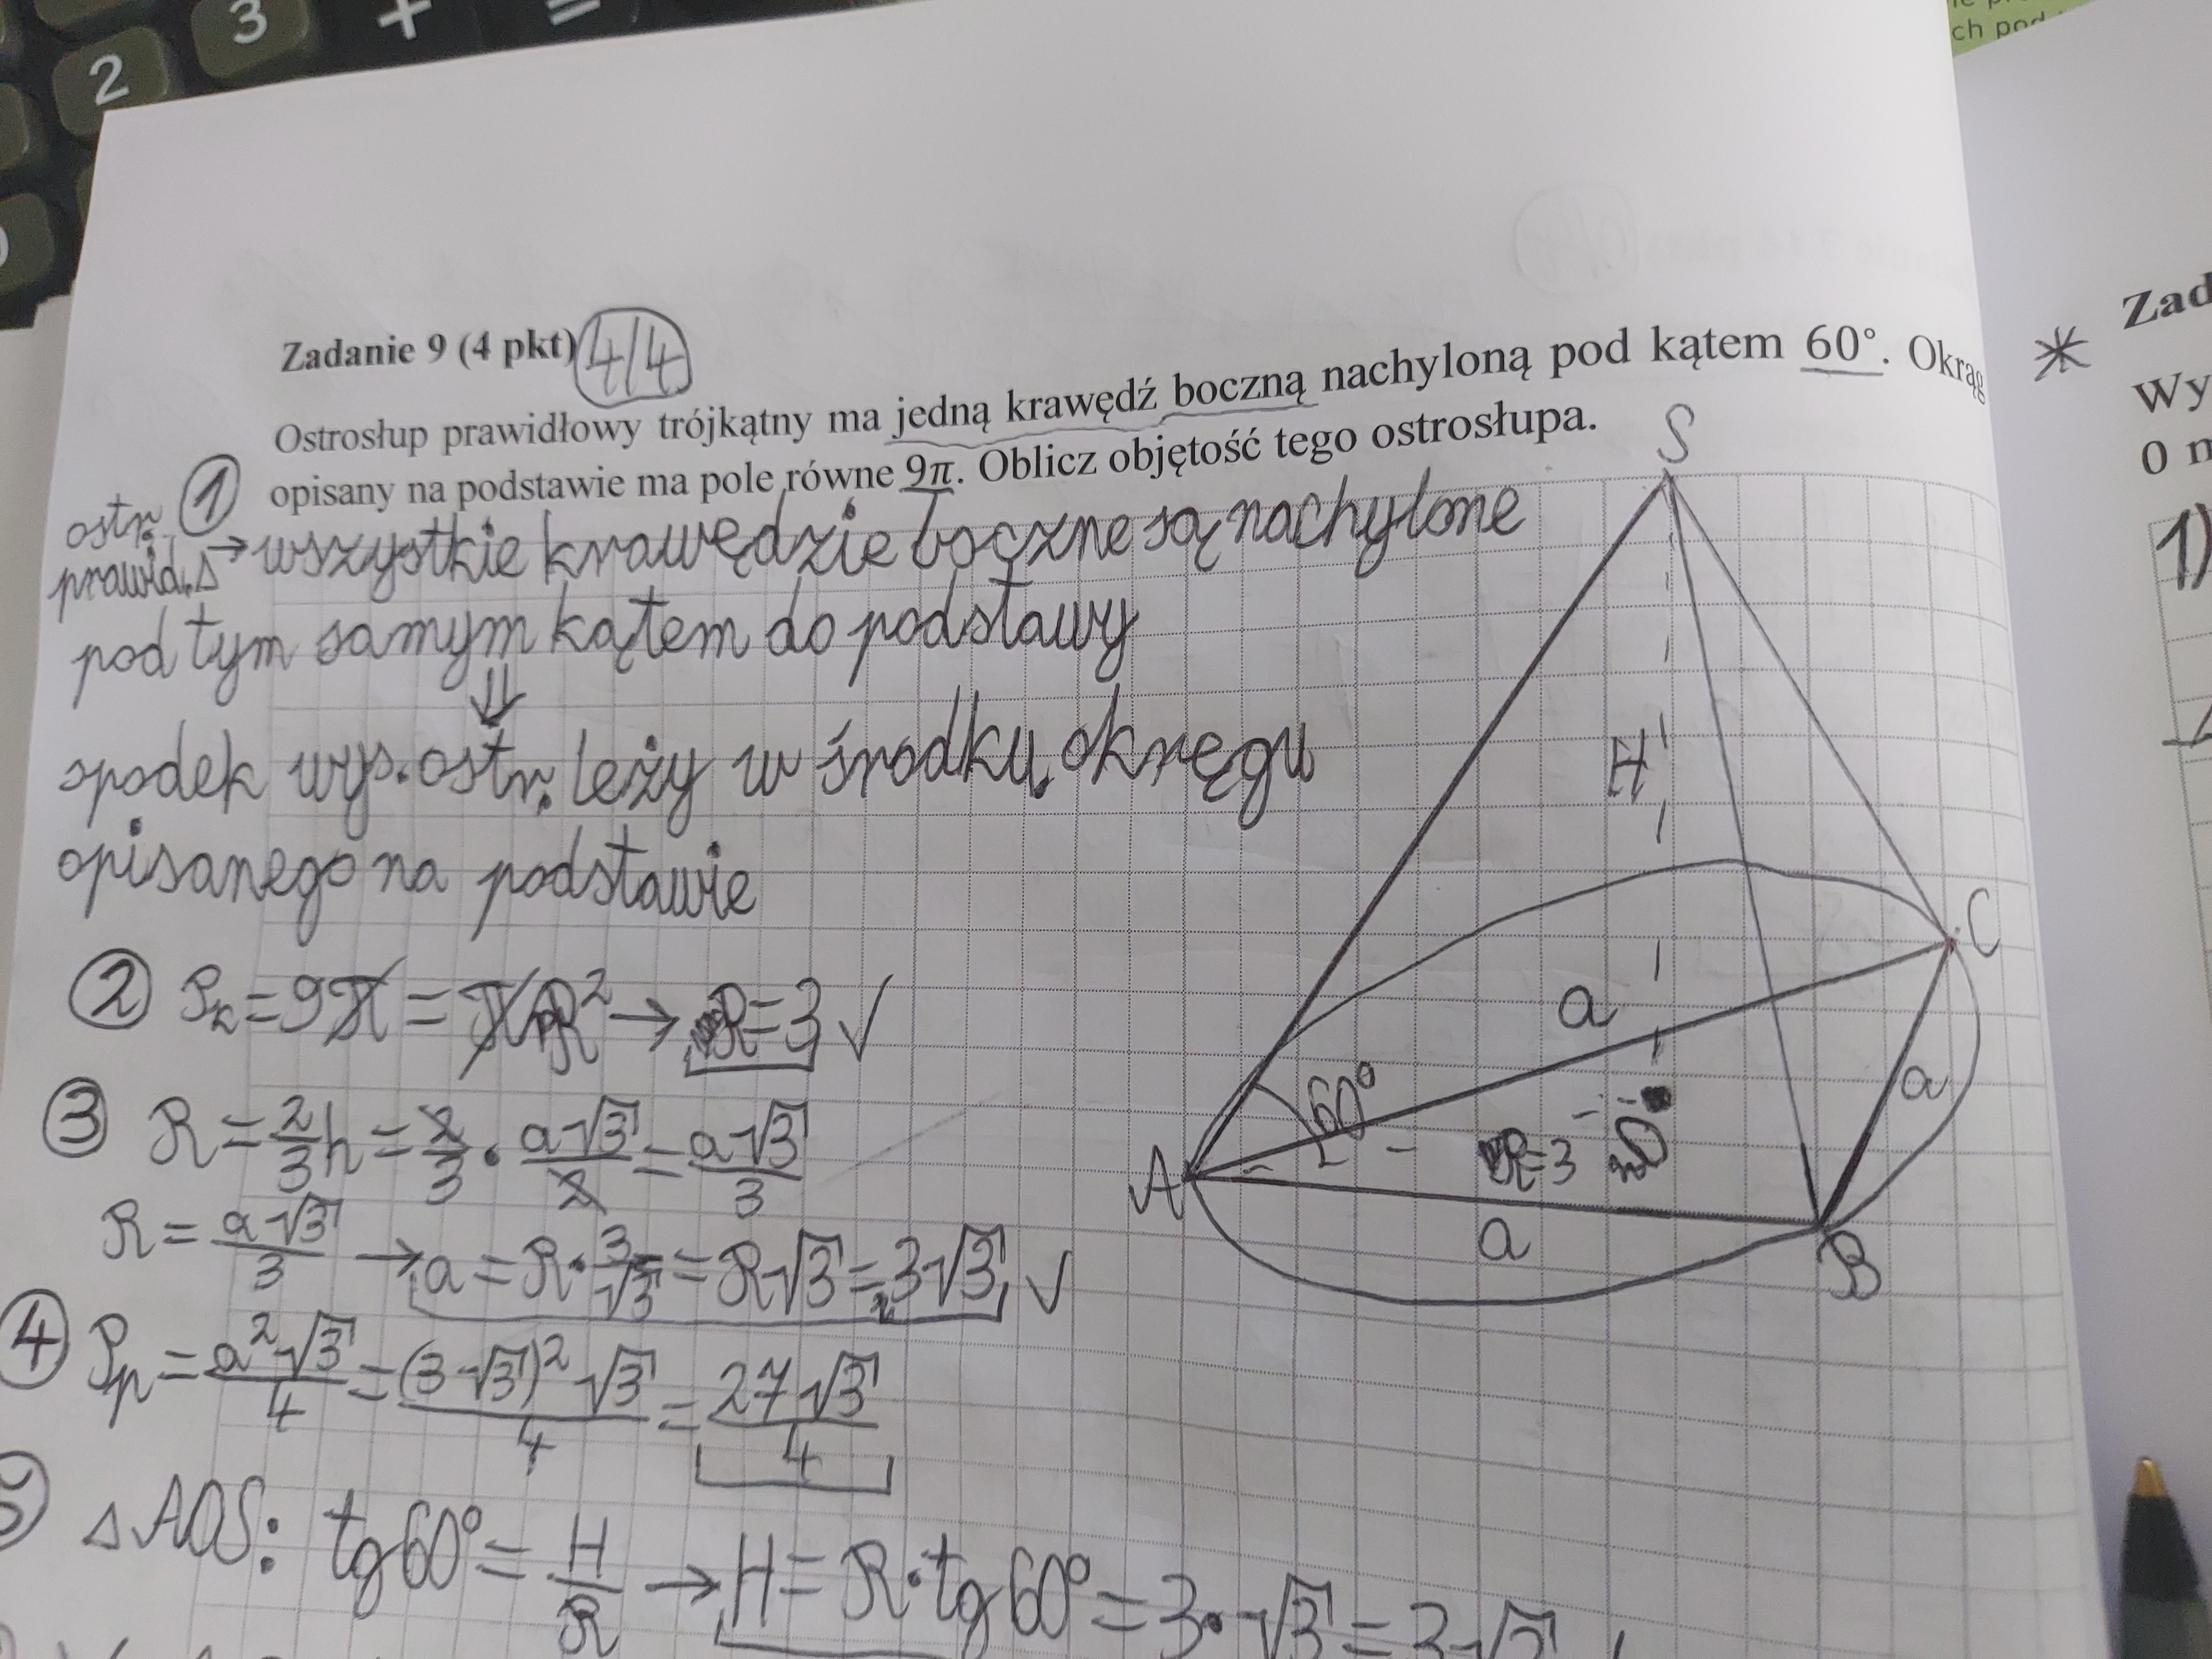 3 + =
2
ch pod
Zadanie 9 (4 pkt) 4/4
Ostrosłup prawidłowy trójkątny ma jedną krawędź boczną nachyloną pod kątem 60°. Okrąg
opisany na podstawie ma pole równe 9π. Oblicz objętość tego ostrosłupa.
① ostr. prawid. Δ → wszystkie krawędzie boczne są nachylone
pod tym samym kątem do podstawy
⇓
spodek wys. ostr. leży w środku okręgu
opisanego na podstawie
② Pk = 9π = πR² → R=3 ✓
③ R = 2/3 h = 2/3 · a√3/2 = a√3/3
R = a√3/3 → a = R · 3/√3 = R√3 = 3√3 ✓
④ Pp = a²√3/4 = (3√3)²√3/4 = 27√3/4
Δ AOS: tg60° = H/R → H = R·tg60° = 3·√3 = 3√3
S
H
C
a
a
60°
R=3
O
A
a
B
* Zad
Wy
0 n
1)